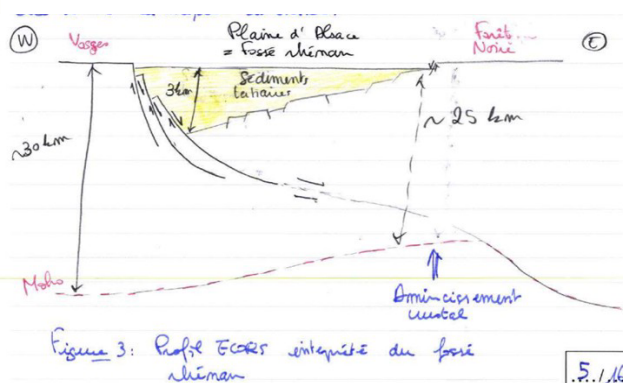 W
Vosges
Plaine d'Alsace
= Fossé rhénan
Forêt
Noire
E
3km
Sédiments
tertiaires
~30 km
~25 km
Moho
Amincissement
crustal
Figure 3: Profil ECORS interprété du fossé
rhénan
5/16